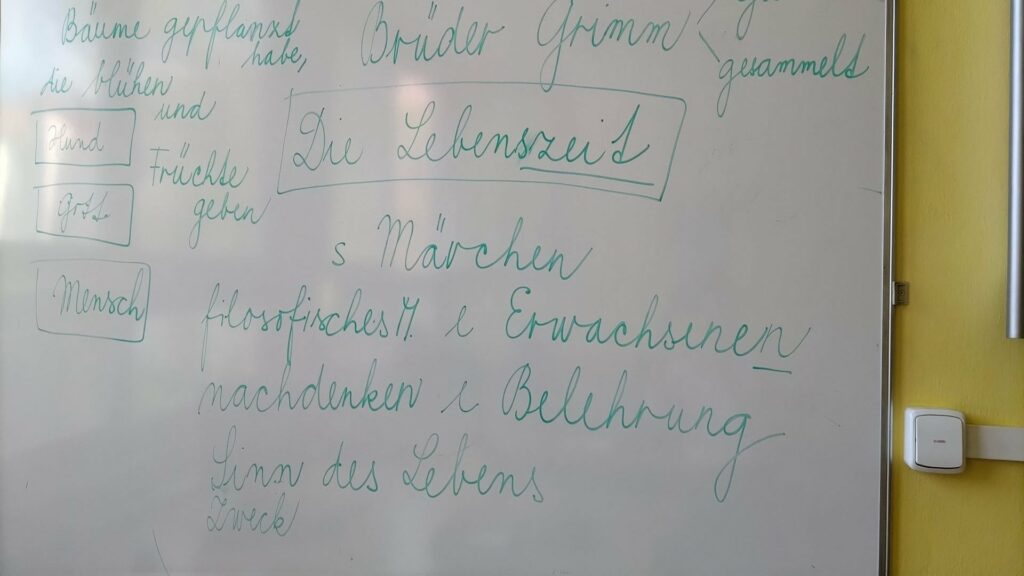 Bäume gepflanzt
habe,
die blühen
und
Früchte
geben
Brüder Grimm
gesammelt
Hund
Gott
Mensch
Die Lebenszeit
s Märchen
filosofisches M. e Erwachsenen
nachdenken e Belehrung
Sinn des Lebens
Zweck